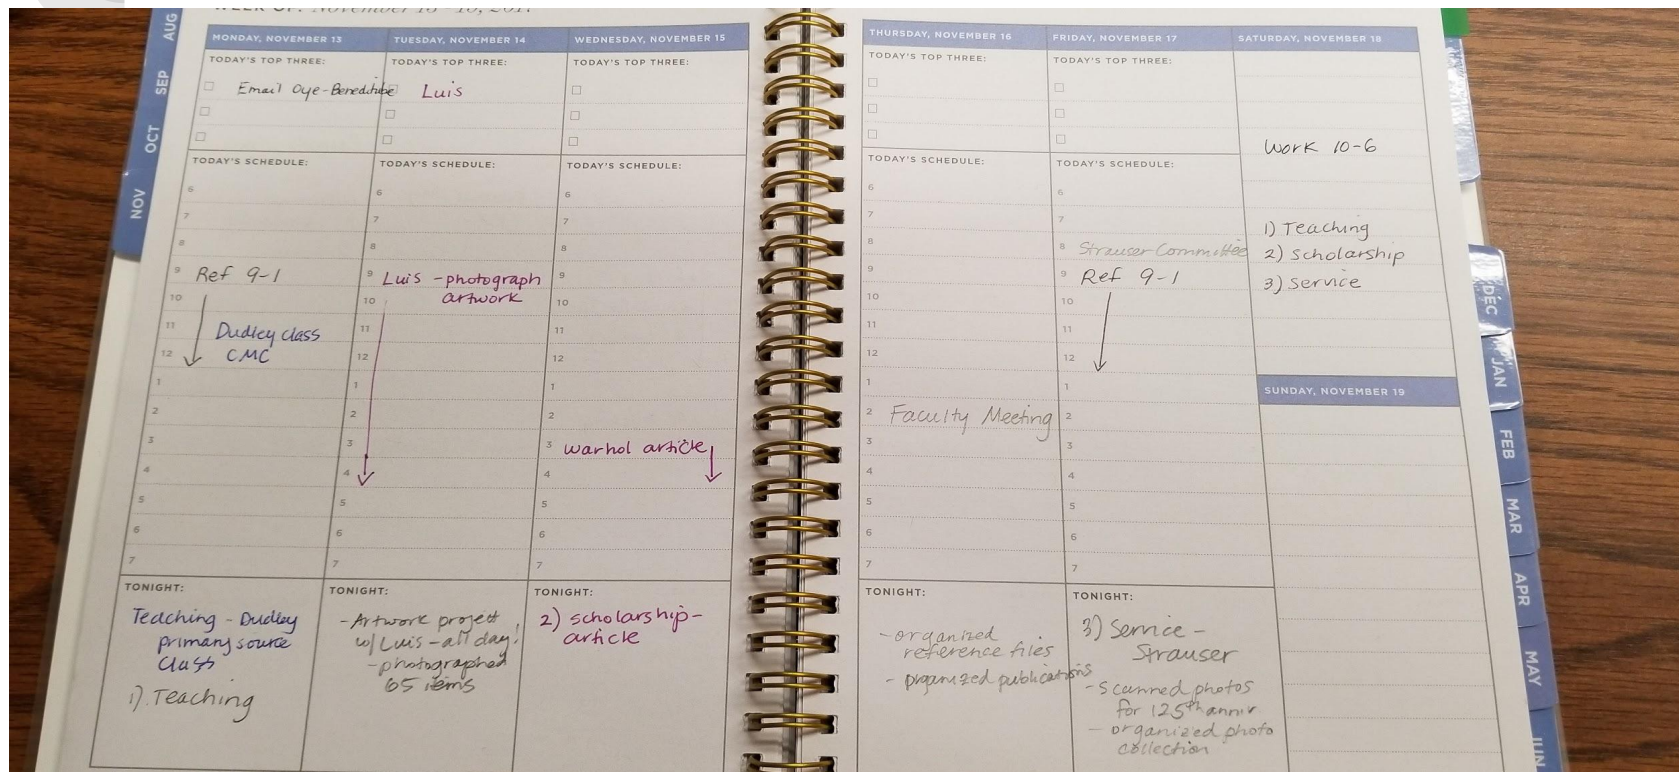 WEEK OF: November 13-19, 2017
AUG
SEP
OCT
NOV
MONDAY, NOVEMBER 13
TODAY'S TOP THREE:
Email
TODAY'S SCHEDULE:
6
7
8
9 Ref 9-1
10
11 Dudley class
12 CMC
1
2
3
4
5
6
7
TONIGHT:
Teaching - Dudley
primary source
Class
1) Teaching
TUESDAY, NOVEMBER 14
TODAY'S TOP THREE:
Luis
TODAY'S SCHEDULE:
6
7
8
9 Luis - photograph
10 artwork
11
12
1
2
3
4
5
6
7
TONIGHT:
- Artwork project
w/ Luis - all day!
- photographed
65 items
WEDNESDAY, NOVEMBER 15
TODAY'S TOP THREE:
TODAY'S SCHEDULE:
6
7
8
9
10
11
12
1
2
3 warhol article
4
5
6
7
TONIGHT:
2) scholarship -
article
THURSDAY, NOVEMBER 16
TODAY'S TOP THREE:
TODAY'S SCHEDULE:
6
7
8
9
10
11
12
1
2 Faculty Meeting
3
4
5
6
7
TONIGHT:
- organized
reference files
- organized publications
FRIDAY, NOVEMBER 17
TODAY'S TOP THREE:
TODAY'S SCHEDULE:
6
7
8 Strauser Committee
9 Ref 9-1
10
11
12
1
2
3
4
5
6
7
TONIGHT:
3) Service -
Strauser
- Scanned photos
for 125th anniv
- organized photo
collection
SATURDAY, NOVEMBER 18
Work 10-6
1) Teaching
2) Scholarship
3) Service
SUNDAY, NOVEMBER 19
DEC
JAN
FEB
MAR
APR
MAY
JUN